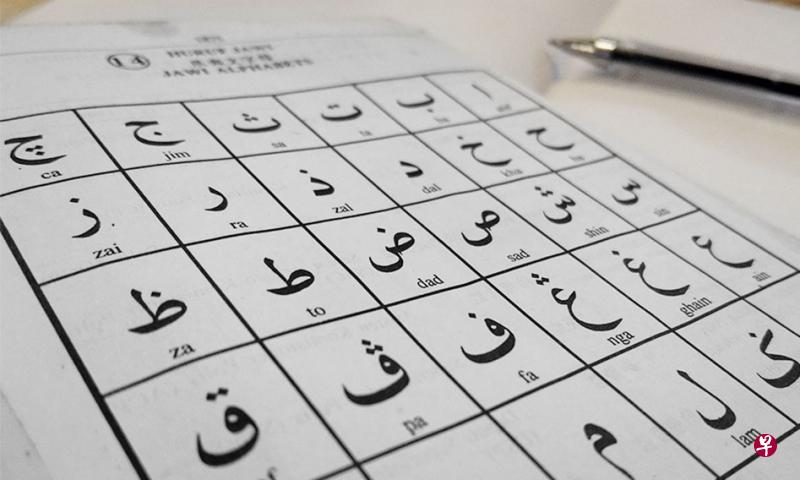 14
HURUF JAWI
爪夷文字母
JAWI ALPHABETS
ا ب ت ث ج چ
alif ba ta sa jim ca
ح خ د ذ ر ز
ha kha dal zal ra zai
س ش ص ض ط ظ
sin shin sad dad to za
ع غ ڠ ف ڤ ق
ain ghain nga fa pa
ل م
lam
早